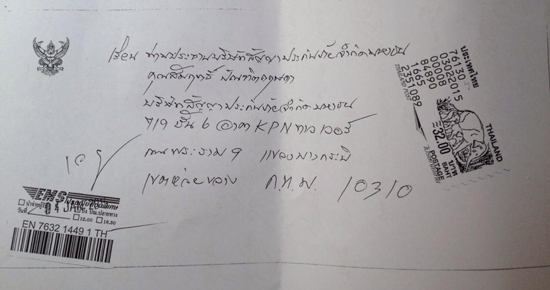 เรียน ท่านประธานบริษัทสัญญาประกันภัยจำกัดมหาชน
คุณ
บริษัทสัญญาประกันภัยจำกัดมหาชน
719 ชั้น 6 อาคาร KPN ทาวเวอร์
ถนนพระราม 9 แขวงบางกะปิ
เขตห้วยขวาง ก.ท.ม. 10310
EMS
EN 7632 1449 1 TH
ประเทศไทย
76130
03022015
00008
84890
1665
2351089
=32.00
บาท BAHT
POSTAGE
THAILAND